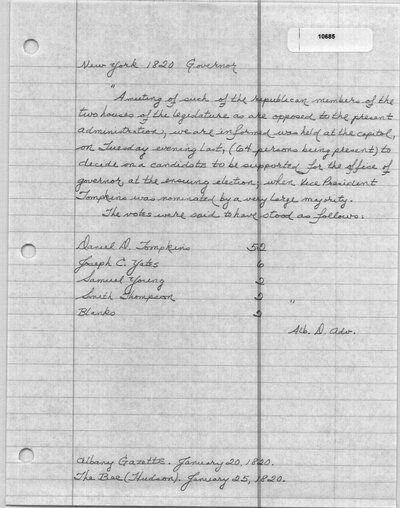 10685
New York 1820 Governor
"A meeting of such of the republican members of the
two houses of the legislature as are opposed to the present
administration, we are informed was held at the capitol,
on Tuesday evening last, (64 persons being present) to
decide on a candidate to be supported for the office of
governor, at the ensuing election; when Vice President
Tompkins was nominated by a very large majority.
The votes were said to have stood as follows:
Daniel D. Tompkins 52
Joseph C. Yates 6
Samuel Young 2
Smith Thompson 2 "
Blanks 2
Alb. D. Adv.
Albany Gazette. January 20, 1820.
The Bee (Hudson). January 25, 1820.